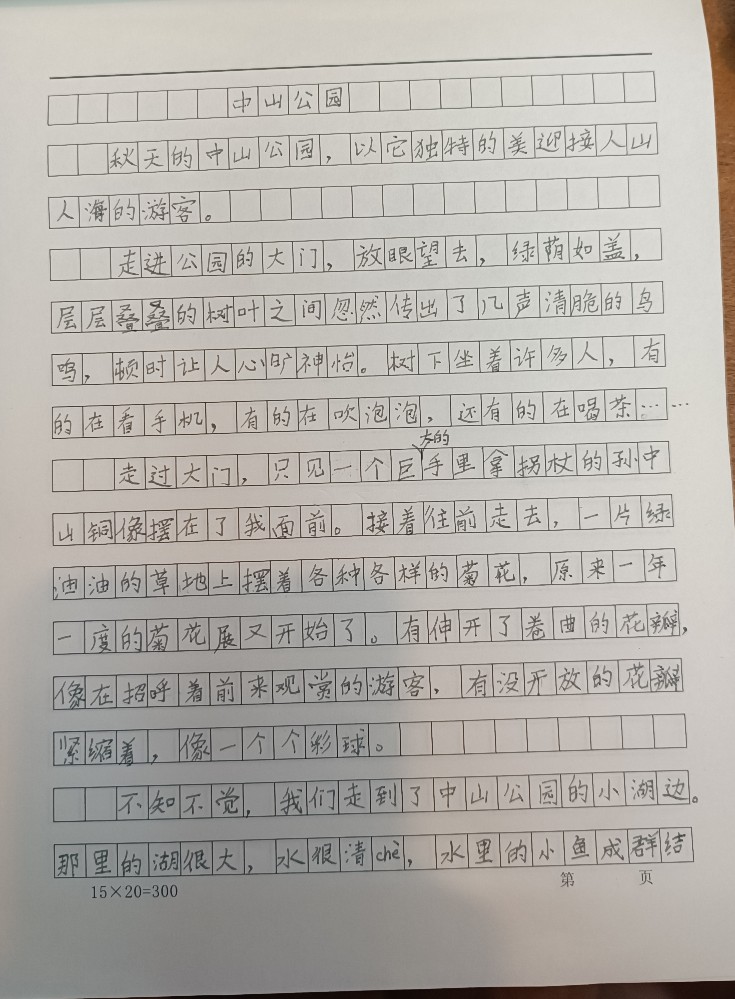 中山公园
秋天的中山公园，以它独特的美迎接人山
人海的游客。
走进公园的大门，放眼望去，绿荫如盖，
层层叠叠的树叶之间忽然传出了几声清脆的鸟
鸣，顿时让人心旷神怡。树下坐着许多人，有
的在看手机，有的在吹泡泡，还有的在喝茶……
走过大门，只见一个巨大的手里拿拐杖的孙中
山铜像摆在了我面前。接着往前走去，一片绿
油油的草地上摆着各种各样的菊花，原来一年
一度的菊花展又开始了。有伸开了卷曲的花瓣，
像在招呼着前来观赏的游客，有没开放的花瓣
紧缩着，像一个个彩球。
不知不觉，我们走到了中山公园的小湖边。
那里的湖很大，水很清chè，水里的小鱼成群结
15×20=300 第 页